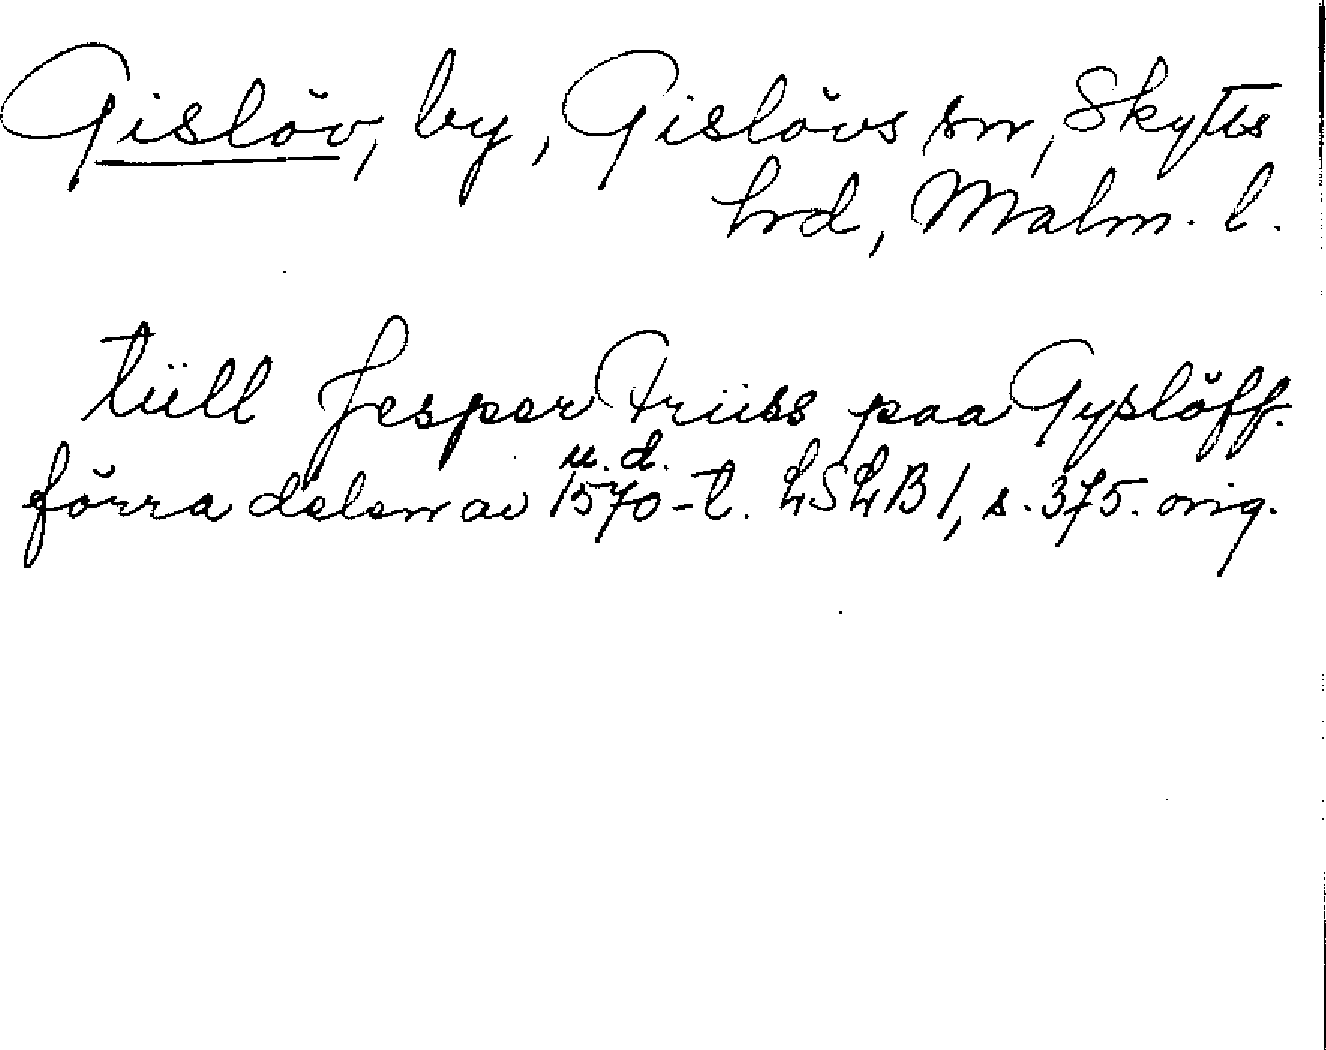 Gislöv, by, Gislövs sn, Skytts
hrd, Malm. l.
tüll Jesper Früss paa Gyslöff.
u. d.
förra delen av 1570-t. LSLB 1, s. 375. orig.